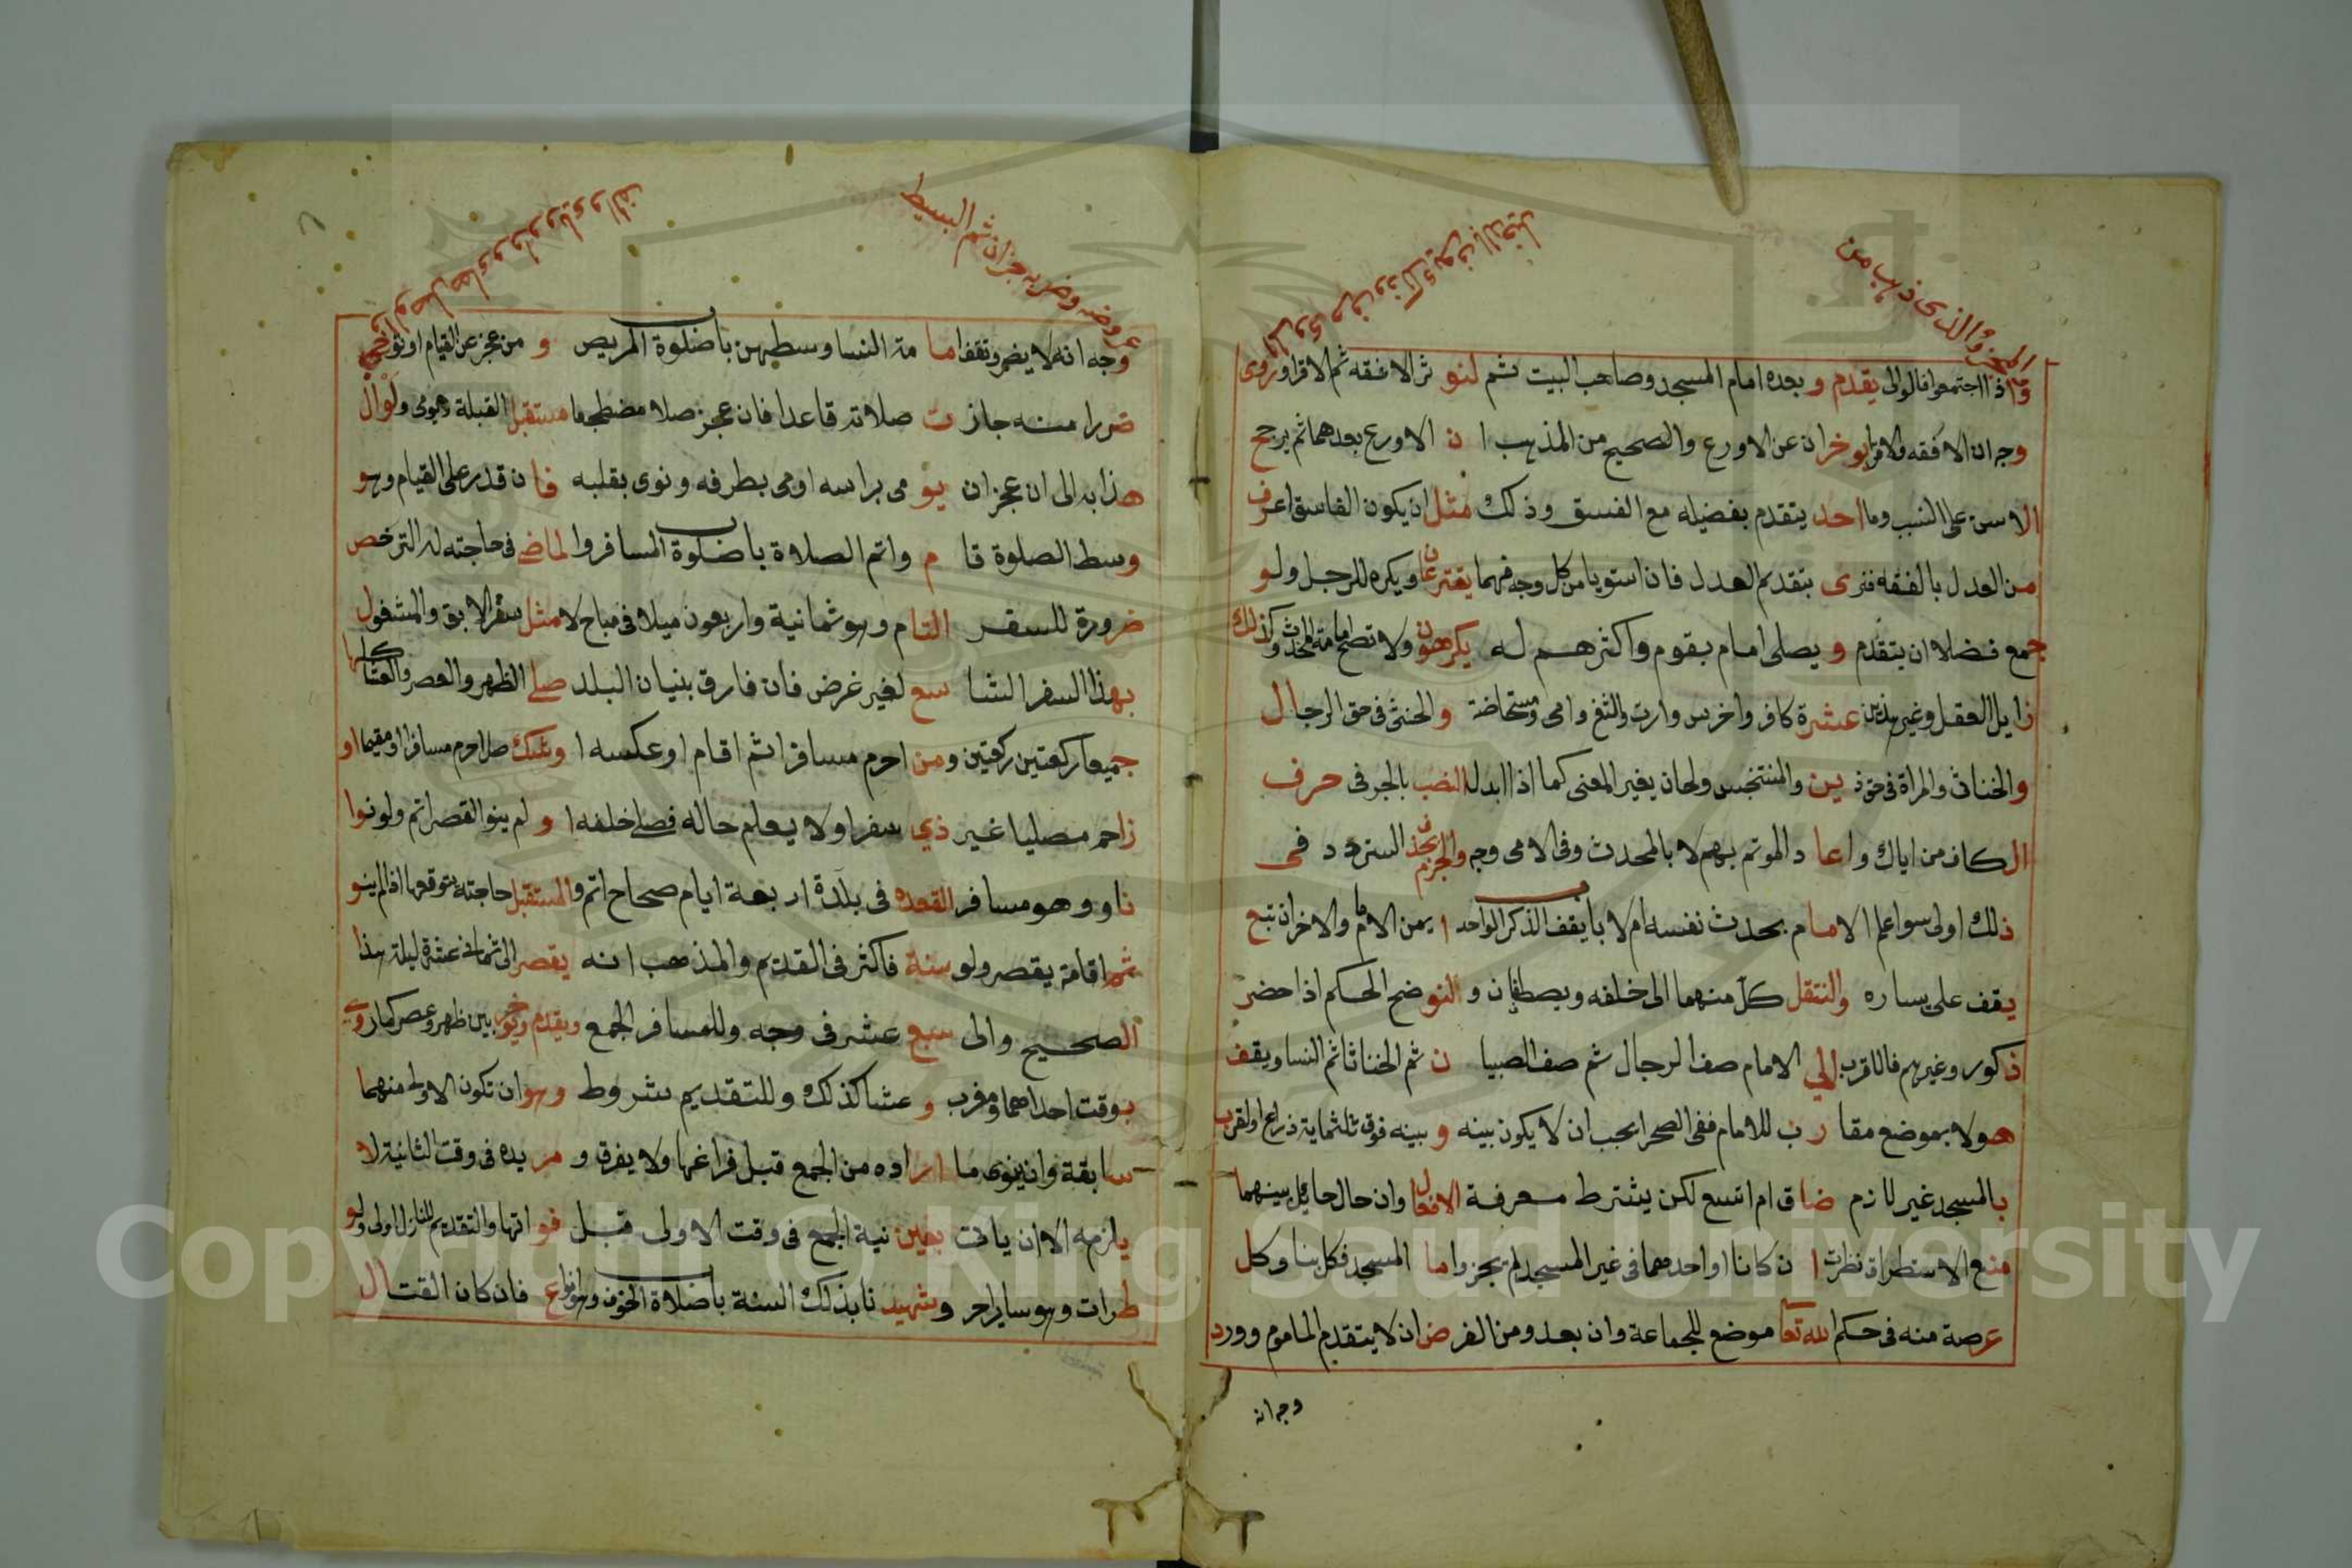 المجزؤ والذى ذهب من
واذا اجتمعوا فالوالى يقدم و بعده امام المسجد وصاحب البيت ثم لنو ثر الافقه ثم الاقرا وروى
وجه ان الافقه والاقرا يوخران عن الاورع والصحيح من المذهب ا ن الاورع بعدهما ثم يرجح
الاسن على النسب وما احد يتقدم بفضيله مع الفسق وذلك مثل ان يكون الفاسق اعرف
من العدل بالفقه فنرى بتقديم العدل فان استويا من كل وجه فهما يقترعان ويكره للرجل ولو
جمع فضلا ان يتقدم و يصلى امام بقوم واكثرهم له يكرهون ولا تصح امامة المحدث وكذلك
زايل العقل وغير هذين عشرة كافر واخرس وارت والثغ وامى ومستحاضة والخنثى فى حق الرجال
والخناثى والمراة فى حق ذ ين والمتنجس ولحان يغير المعنى كما اذا ابدل النصب بالجر فى حرف
الكاف من اياك واعا د الموتم بهم لا بالمحدث وفى الامى وجه والجزم بحذف التردد فى
ذلك اولى سوا علم الامام بحدث نفسه ام لا باب يقف الذكر الواحد ا يمن الامام والاخر ان تبع
يقف على يساره والنتقل كل منهما الى خلفه ويصطفان و النو ضح الحكم اذا حضر
ذكور وغيرهم فالاقرب الى الامام صف الرجال ثم صف الصبيا ن ثم الخناثا ثم النسا ويقف
هولا بموضع مقا ر ب للامام ففى الصحرا يجب ان لا يكون بينه و بينه فوق ثلثماية ذراع او لقرب
بالمسجد غير لازم ضاق ام اتسع لكن يشترط معرفة الافعال وان حال حايل بينهما
منع الاستطراق نظرت ا ن كانا او احدهما فى غير المسجد لم يجز واما المسجد فكل بنا وكل
عرصة منه فى حكم الله تعا موضع للجماعة وان بعد ومن الفرض ان لا يتقدم الماموم وورد
وجه انه
عروضه وضربه جزان ثم البسيط
وجه انه لا يضر وتقف اما مة النسا وسطهن باب صلوة المريض و من عجز عن القيام او توخى
ضررا منه جاز ت صلاته قاعدا فان عجز صلا مضطجعا مستقبل القبلة ويومى ولو ال
هذا به الى ان عجز ان يو مى براسه اومى بطرفه ونوى بقلبه فا ن قدر على القيام وهو
وسط الصلوة قا م واتم الصلاة باب صلوة المسافر والماضى فى حاجته له الترخص
ضرورة للسفر التام وهو ثمانية واربعون ميلا فى مباح لا مثل سفر الابق والمشغول
بهذا السفر الشا سع لغير غرض فان فارق بنيان البلد صلى الظهر والعصر والعشا كلها
جميعا ركعتين ركعتين ومن احرم مسافرا ثم اقام او عكسه ا وشك هل احرم مسافرا او مقيما او
زاحم مصليا غير ذي سفر اولا يعلم حاله فصلى خلفه ا و لم ينو القصر اتم ولو نوا
ناو وهو مسافر القعده فى بلدة اربعة ايام صحاح اتم والمستقبل حاجته يتوقعها اذا لم ينو
ثم اقامة يقصر ولو سنة فاكثر فى القديم والمذهب انه يقصر الى ثمانى عشرة ليلة هذا
الصحيح والى سبع عشر فى وجه وللمسافر الجمع ويقدم ويوخر بين ظهر وعصر كما روى
بوقت احداهما ومغرب و عشا كذلك وللتقديم شروط وهو ان تكون الاولى منهما
سابقة وان ينوى ما اراده من الجمع قبل فراغها ولا يفرق و مريده فى وقت الثانية لا
يلزمه الا ان ياتى بعين نية الجمع فى وقت الاولى قبل فو اتها والتقديم للنازل اولى ولو
طرات وهو ساير اخر وشهيد نا بذلك السنة باب صلاة الخوف وهو انواع فان كان القتال